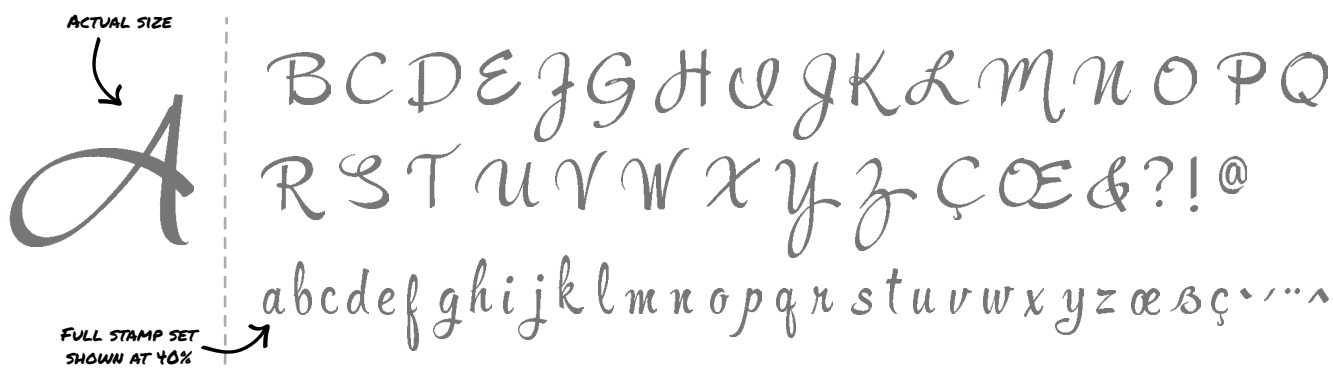 Actual size
A
B C D E F G H I J K L M N O P Q
R S T U V W X Y Z Ç Œ & ? ! @
a b c d e f g h i j k l m n o p q r s t u v w x y z œ ß ç ` ´ ¨ ^
Full stamp set
shown at 40%